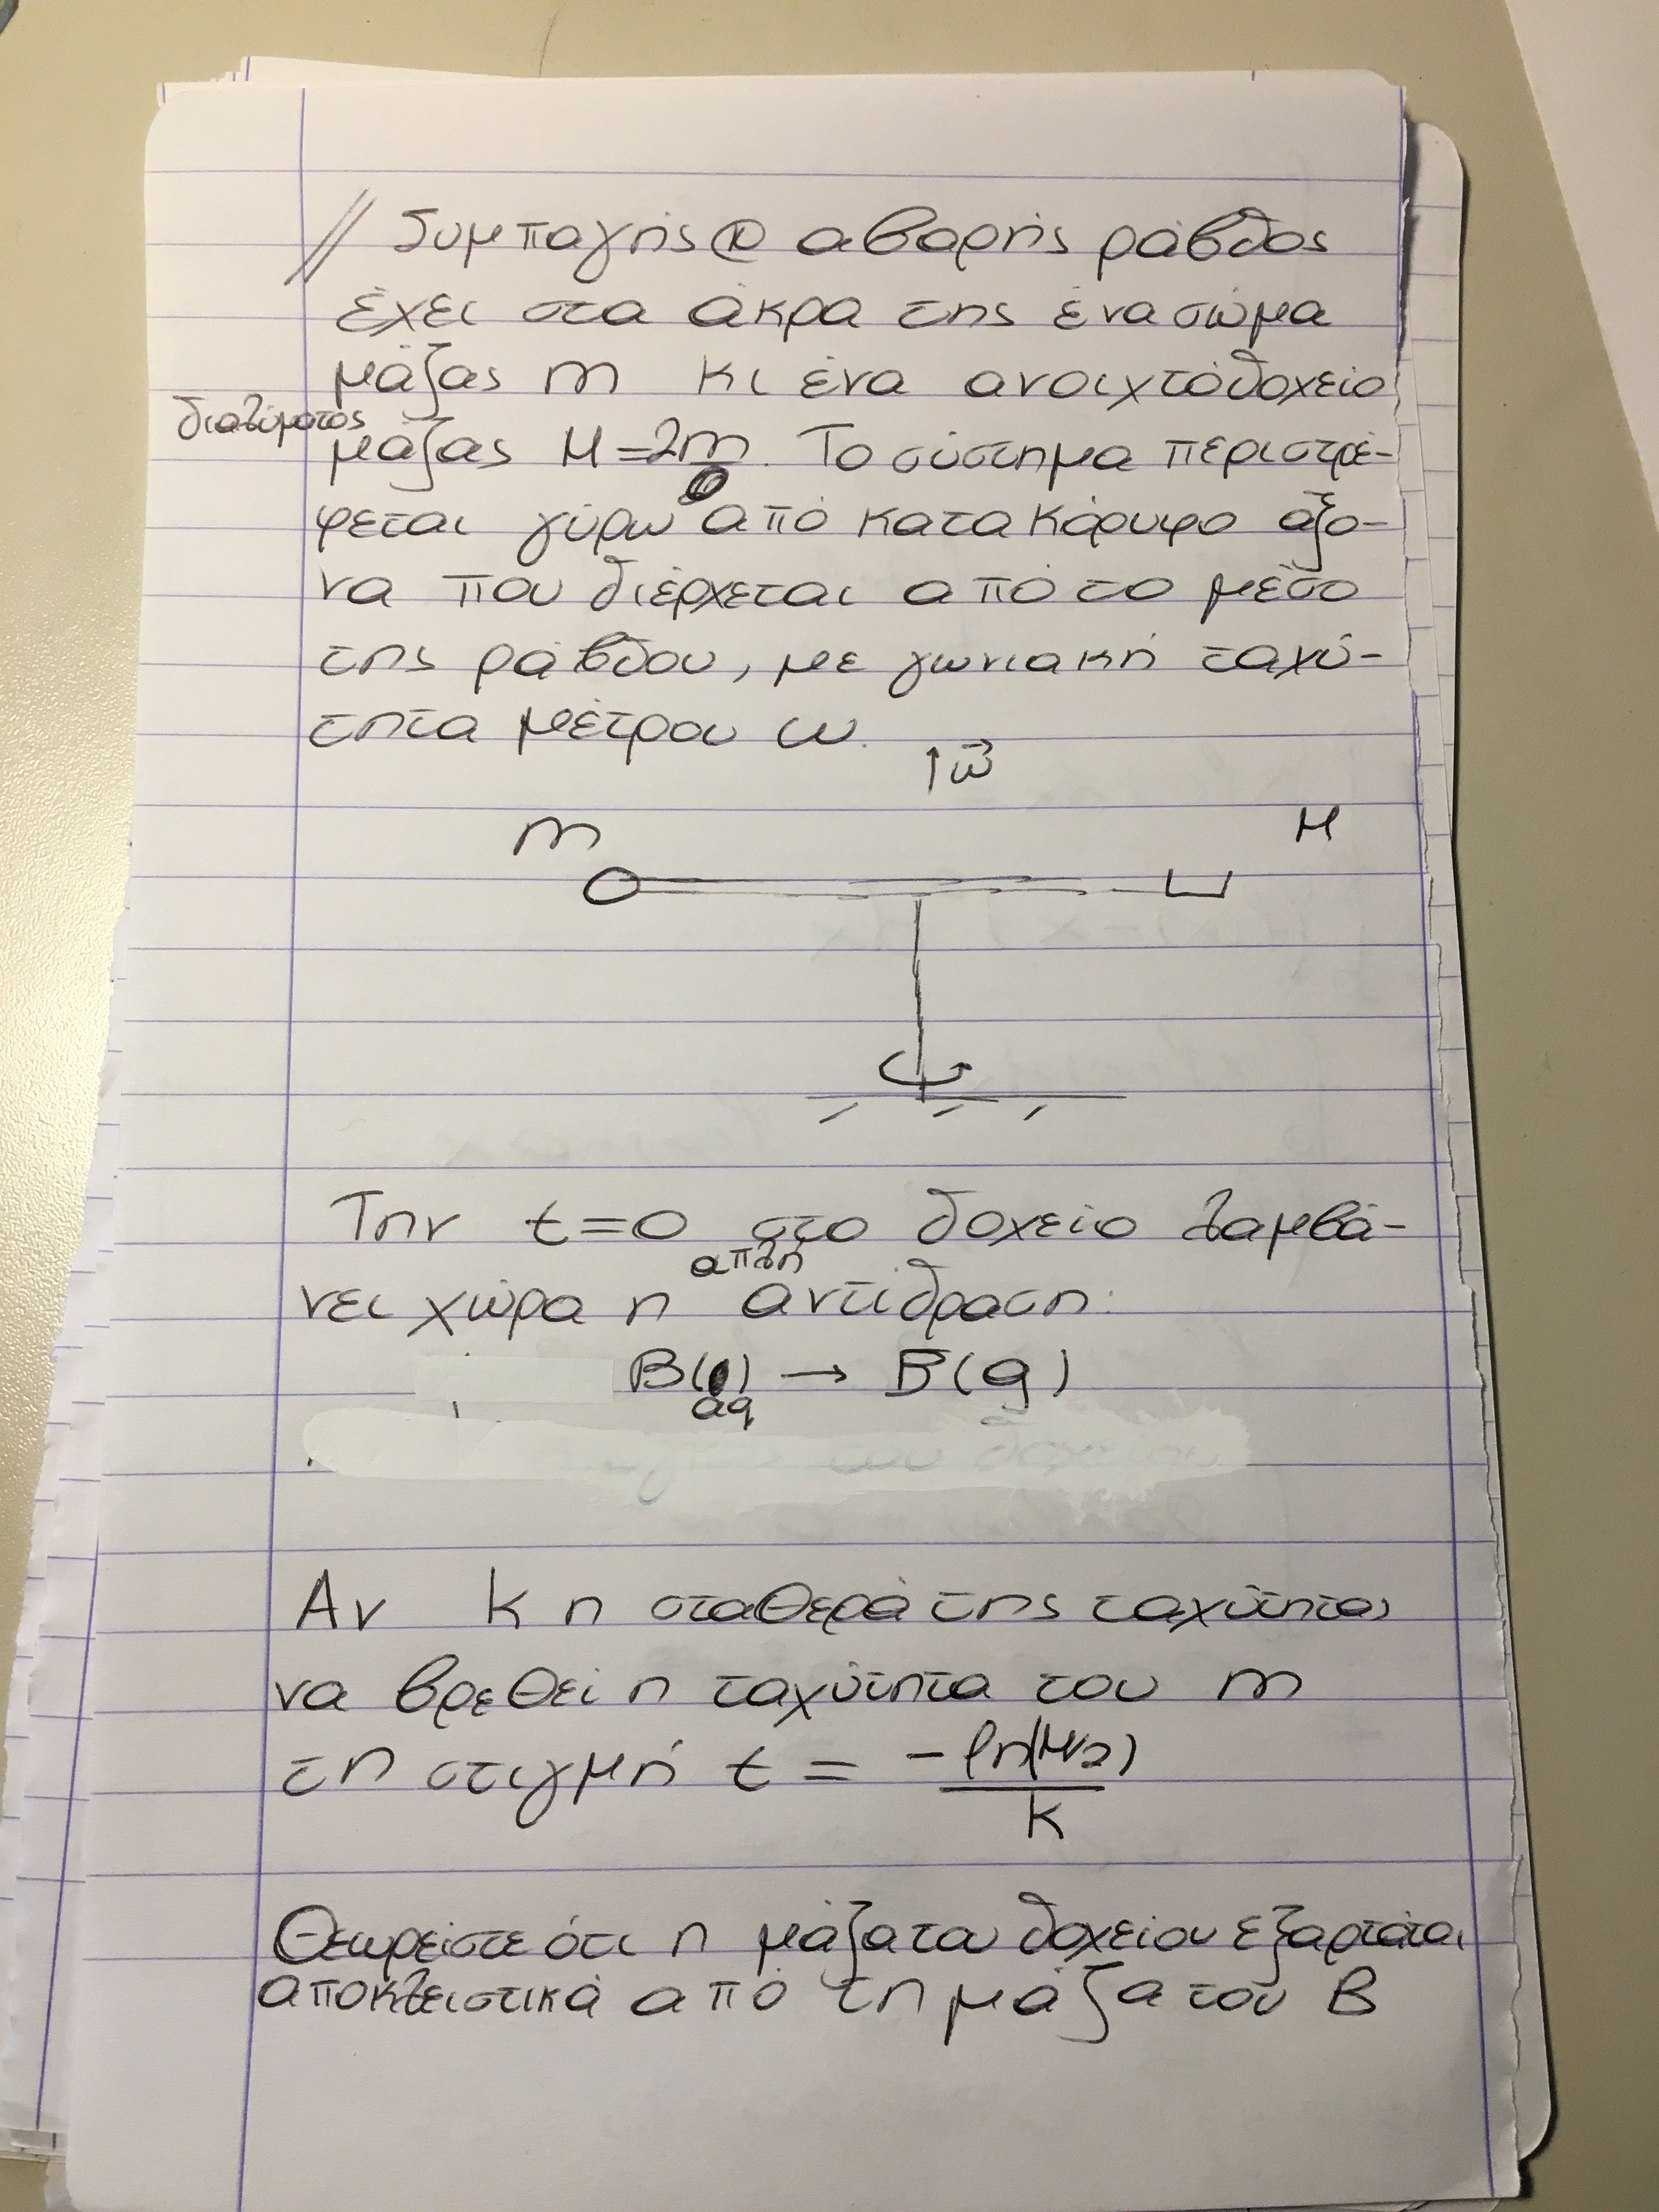 // Συμπαγής αβαρής ράβδος
έχει στα άκρα της ένα σώμα
μάζας m κι ένα ανοιχτό δοχείο
διαλύματος
μάζας M=2m. Το σύστημα περιστρέ-
φεται γύρω από κατακόρυφο άξο-
να που διέρχεται από το μέσο
της ράβδου, με γωνιακή ταχύ-
τητα μέτρου ω.
ω
m M
Την t=0 στο δοχείο λαμβά-
απλή
νει χώρα η αντίδραση:
B( ) → B(g)
aq
Αν k η σταθερά της ταχύτητας
να βρεθεί η ταχύτητα του m
τη στιγμή t = -ln(M/2)/k
Θεωρείστε ότι η μάζα του δοχείου εξαρτάται
αποκλειστικά από τη μάζα του B